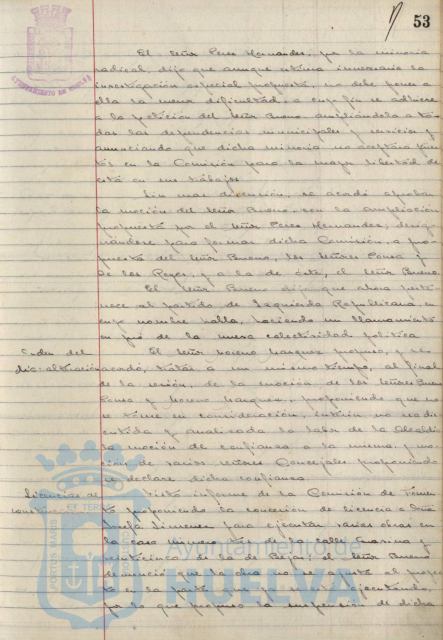 53
AYUNTAMIENTO DE HUELVA
El Señor Peres Hernandes, por la minoria
radical, dijo que aunque estima innecesaria la
investigación especial propuesta, no debe ponerse a
ella la menor dificultad, a cuyo fin se adhiere
a la petición del Señor Bueno ampliándola a to-
das las dependencias municipales y servicios y
anunciando que dicha minoria no aceptará pues-
tos en la Comisión para la mayor libertad de
ésta en sus trabajos.
Sin mas discusión, se acordó aprobar
la moción del Señor Bueno, con la ampliación
propuesta por el Señor Peres Hernandes, desig-
nándose para formar dicha Comisión, a pro-
puesta del Señor Bueno, los Señores Ponsa y
de los Reyes, y a la de éste, el Señor Bueno.
El Señor Bueno dijo que ahora perte-
nece al partido de Izquierda Republicana, en
cuyo nombre habla, haciendo un llamamiento
en pro de la nueva colectividad politica
Orden del
El Señor Moreno Marquez propuso, y se
dia: alteración
acordó, tratar a un mismo tiempo, al final
de la sesión, de la moción de los Señores Bueno
Ponsa y Moreno Marquez, proponiendo que no
se tome en consideración, interin no sea dis-
cutida y analizada la labor de la Alcaldia
la moción de confianza a la misma, y mo-
ción de varios señores Concejales proponiendo
se declare dicha confianza.
Licencias de
Visto informe de la Comisión de Fomen-
to proponiendo la concesión de licencia a Doña
Josefa Jimenez para ejecutar varias obras en
la casa número tres de la calle Marina y
veinticinco de la de Bejar, el Señor Bueno
denunció que la obra no se ajusta al proyec-
to en la parte que ya viene ejecutando,
por lo que propuso la suspensión de dicha
PORTUS MARIS ET TERRAE
Ayuntamiento de
HUELVA